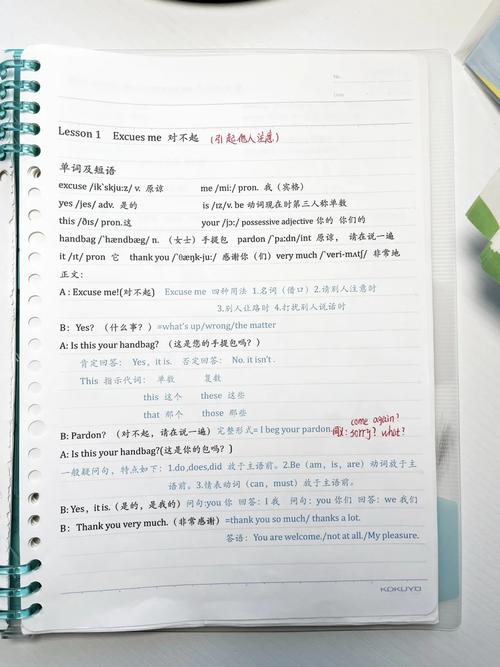 No.
Date
Lesson 1 Excues me 对不起 (引起他人注意)
单词及短语
excuse /ik`skju:z/ v. 原谅 me /mi:/ pron. 我（宾格）
yes /jes/ adv. 是的 is /ɪz/v. be 动词现在时第三人称单数
this /ðɪs/ pron.这 your /jɔ:/ possessive adjective 你的 你们的
handbag /`hændbæg/ n. （女士）手提包 pardon /`pa:dn/int 原谅， 请在说一遍
it /ɪt/ pron 它 thank you /`θæŋk-ju:/ 感谢你（们）very much /`veri-mʌtʃ/ 非常地
正文：
A : Excuse me!(对不起) Excuse me 四种用法 1.名词（借口）2.请别人注意时
3.别人让路时 4.打扰别人说话时
B： Yes? （什么事？）=what's up/wrong/the matter
A: Is this your handbag? （这是您的手提包吗？）
肯定回答： Yes, it is. 否定回答： No. it isn't .
This 指示代词： 单数 复数
this 这个 these 这些
that 那个 those 那些
come again?
B: Pardon? （对不起，请在说一遍）完整形式= I beg your pardon. 同义: sorry? what?
A: Is this your handbag?(这是你的包吗？)
一般疑问句，特点如下：1.do,does,did 放于主语前。2.Be（am, is, are）动词放于主
语前。3.情表动词（can, must）放于主语前。
B:Yes, it is.（是的，是我的）问句:you 你 回答：I 我 问句：you 你们 回答：we 我们
B： Thank you very much.（非常感谢）=thank you so much/ thanks a lot.
答语： You are welcome./not at all./My pleasure.
KOKUYO